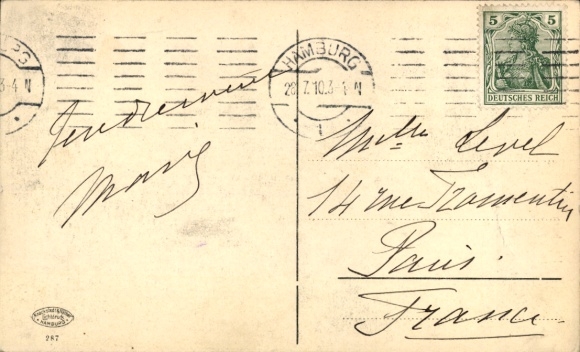 HAMBURG
28.7.10.3-4 N
5 5
DEUTSCHES REICH
Tendrement
Marie
Melle Level
14 rue Fromentin
Paris.
France
HAMBURG
287